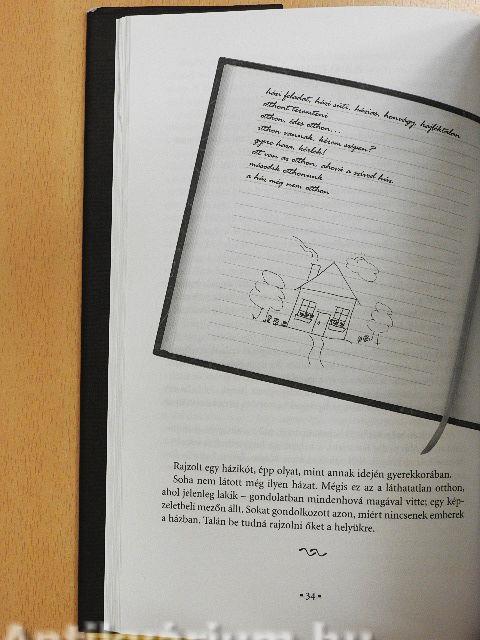 házi feladat, házi sütő, házias, honvágy, hajléktalan
otthont teremteni
otthon, édes otthon...
itthon vannak, kérem szépen?
gyere haza, kérlek!
ott van az otthon, ahová a szíved húz.
második otthonunk
a ház még nem otthon
Rajzolt egy házikót, épp olyat, mint annak idején gyerekkorában.
Soha nem látott még ilyen házat. Mégis ez az a láthatatlan otthon,
ahol jelenleg lakik – gondolatban mindenhová magával vitte; egy kép-
zeletbeli mezőn állt. Sokat gondolkozott azon, miért nincsenek emberek
a házban. Talán be tudná rajzolni őket a helyükre.
• 34 •
Antikvárium.hu